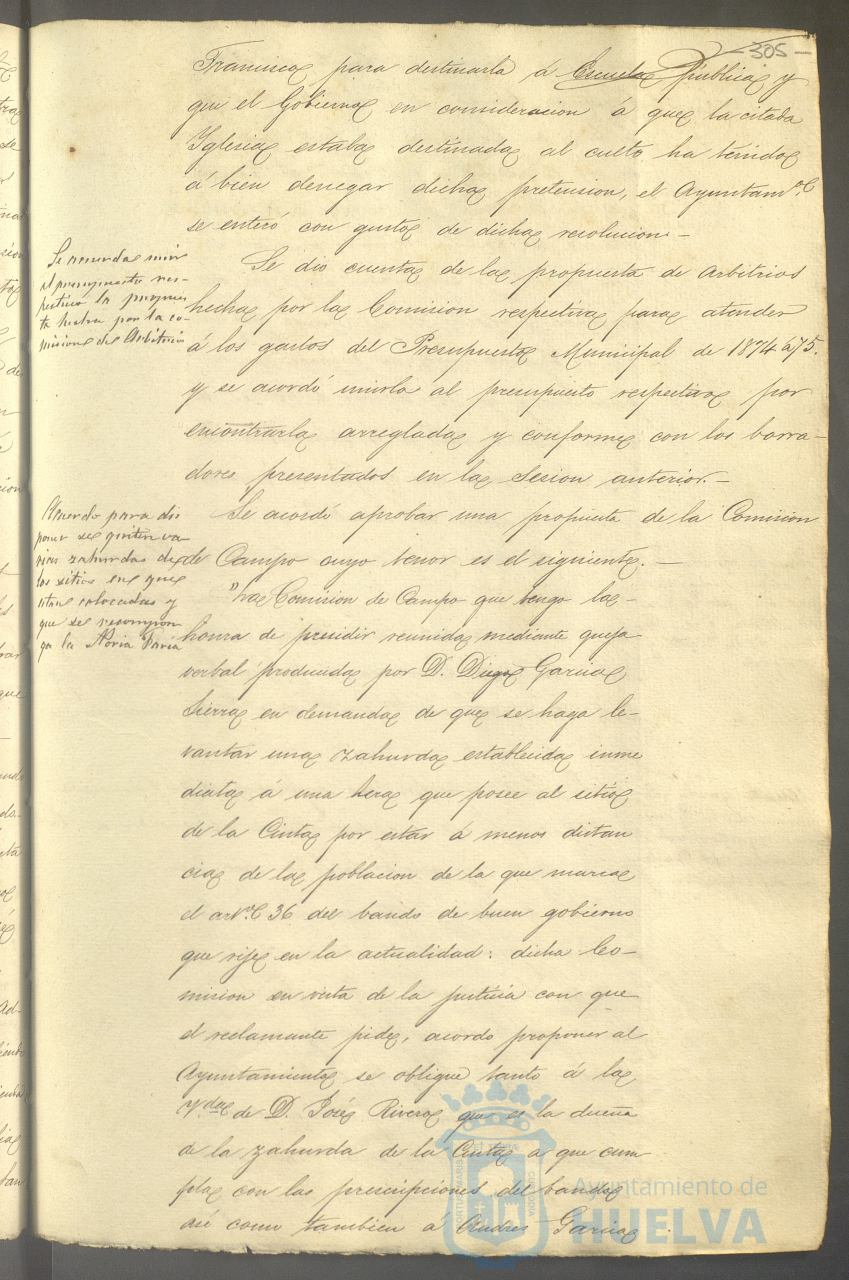 305
Francisco para destinarla á Escuela publica y
que el Gobierno en consideracion á que la citada
Yglesia estaba destinada al culto ha tenido
á bien denegar dicha pretension, el Ayuntam.to
se enteró con gusto de dicha resolucion.-
Se acuerda unir
al presupuesto res-
pectivo la propues
ta hecha por la co-
mision de Arbitrios
Se dio cuenta de la propuesta de Arbitrios
hecha por la Comision respectiva para atender
á los gastos del Presupuesto Municipal de 1874 á 75.
y se acordó unirla al presupuesto respectivo por
encontrarla arreglada y conforme con los borra-
dores presentados en la Sesion anterior.-
Acuerdo para dis
poner se quiten va
rias zahurdas de
los sitios en que
estan colocadas y
que se recompon
ga la Noria
Se acordó aprobar una propuesta de la Comision
de Campo cuyo tenor es el siguiente.-
"La Comision de Campo que tengo la
honra de presidir reunida mediante queja
verbal producida por D. Diego Garcia
Sierra en demanda de que se haga le-
vantar una zahurda establecida inme
diata á una hera que posee al sitio
de la Cinta por estar á menos distan
cia de la poblacion de la que marca
el art.o 36 del bando de buen gobierno
que rije en la actualidad: dicha Co-
mision en vista de la justicia con que
el reclamante pide, acordo proponer al
Ayuntamiento se obligue tanto á la
V.da de D. José Rivero que es la dueña
de la zahurda de la Cinta a que cum
pla con las prescripciones del bando
así como tambien a Andres Garcia
Ayuntamiento de
HUELVA